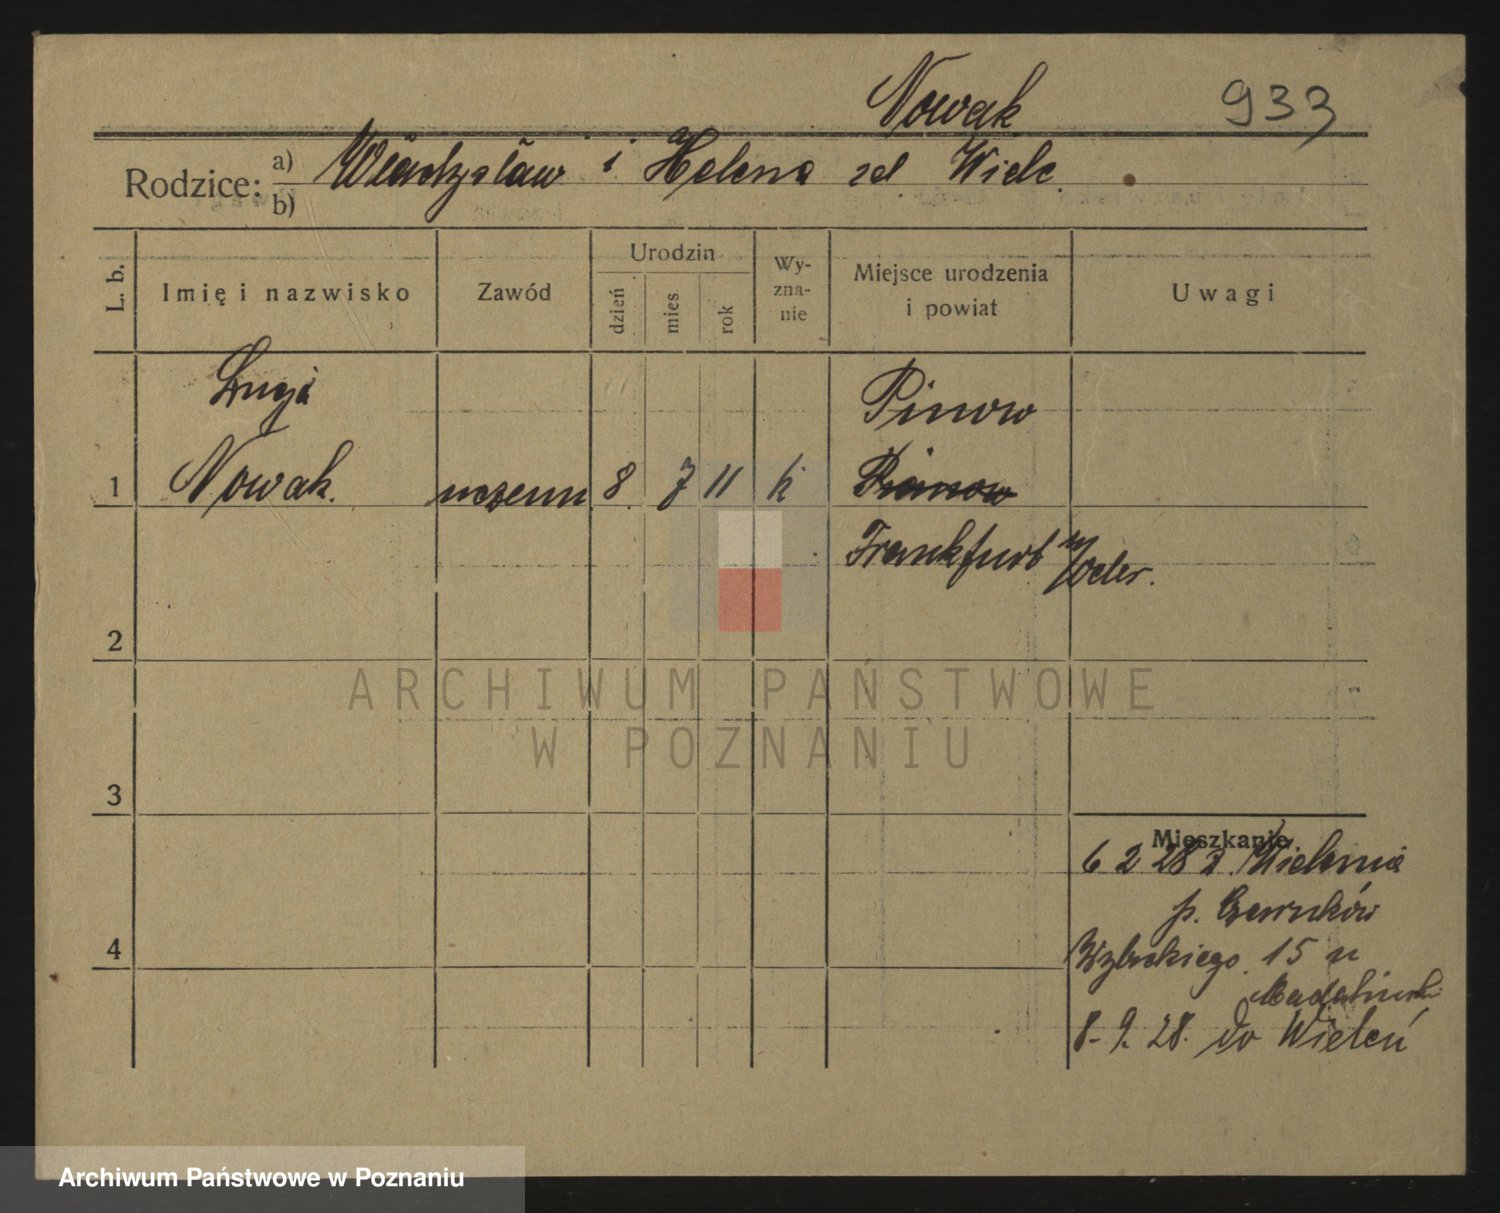 Nowak 933
Rodzice: a) Władysław i Helena zd Wielc.
b)
L. b. Imię i nazwisko Zawód Urodzin dzień mies rok Wy-zna-nie Miejsce urodzenia i powiat Uwagi
Łucja Pinow
1 Nowak. uczenn 8 7 11 k
Frankfurt n/Oder.
2
ARCHIWUM PAŃSTWOWE
W POZNANIU
3
Mieszkanie
6 2 28 z Wielenia
p. Czarnków
15 u
8. 9. 28. do Wieleń
4
Archiwum Państwowe w Poznaniu